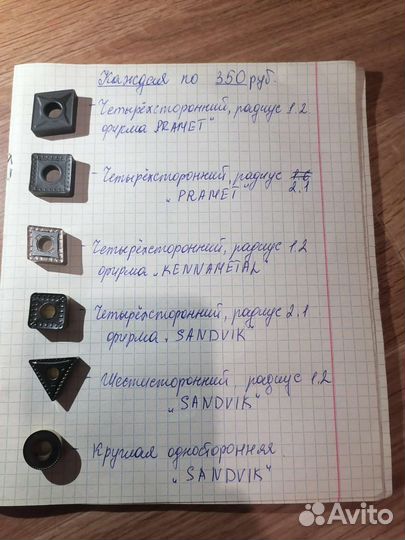 Каждая по 350 руб.
Четырёхсторонний, радиус 1.2
фирма PRAMET"
Четырёхсторонний, радиус 1.6
2.1
"PRAMET"
Четырёхсторонний, радиус 1.2
фирма "KENNAMETAL"
Четырёхсторонний, радиус 2.1
фирма "SANDVIK"
Шестисторонний, радиус 1.2
"SANDVIK"
Круглая односторонняя.
"SANDVIK"
Avito